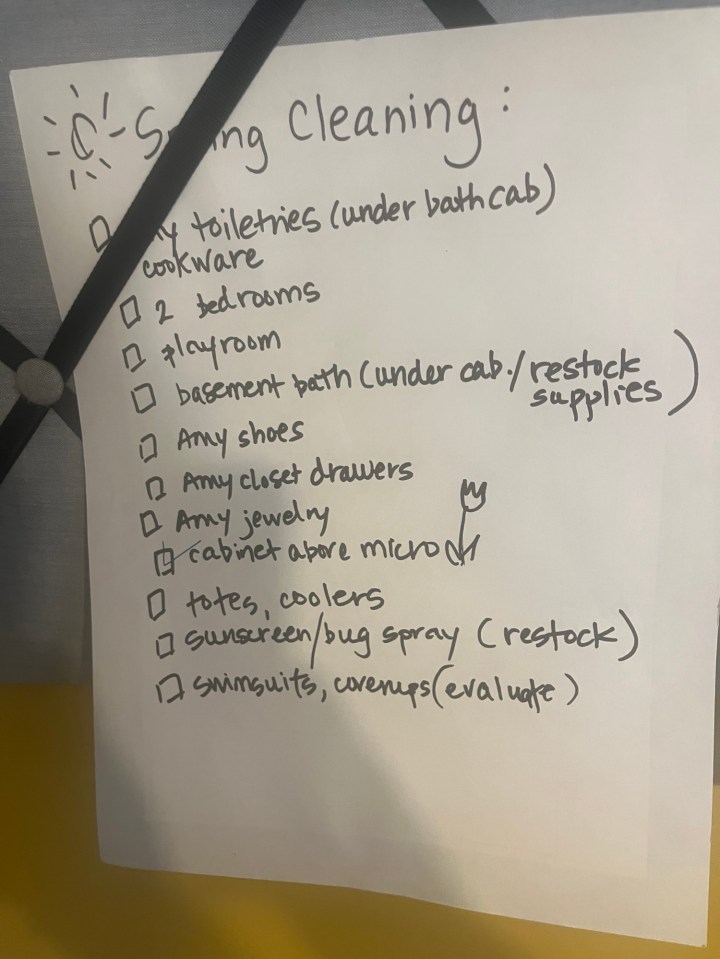 Cleaning:
toiletries (under bath cab)
cookware
2 bedrooms
playroom
basement bath (under cab./restock
supplies)
Amy shoes
Amy closet drawers
Amy jewelry
cabinet above micro
totes, coolers
sunscreen/bug spray (restock)
swimsuits, coverups (evaluate)